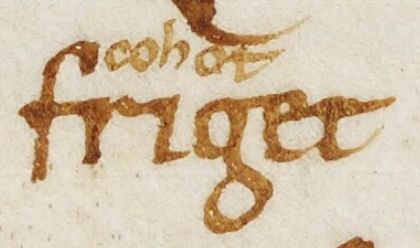 cohot
friget